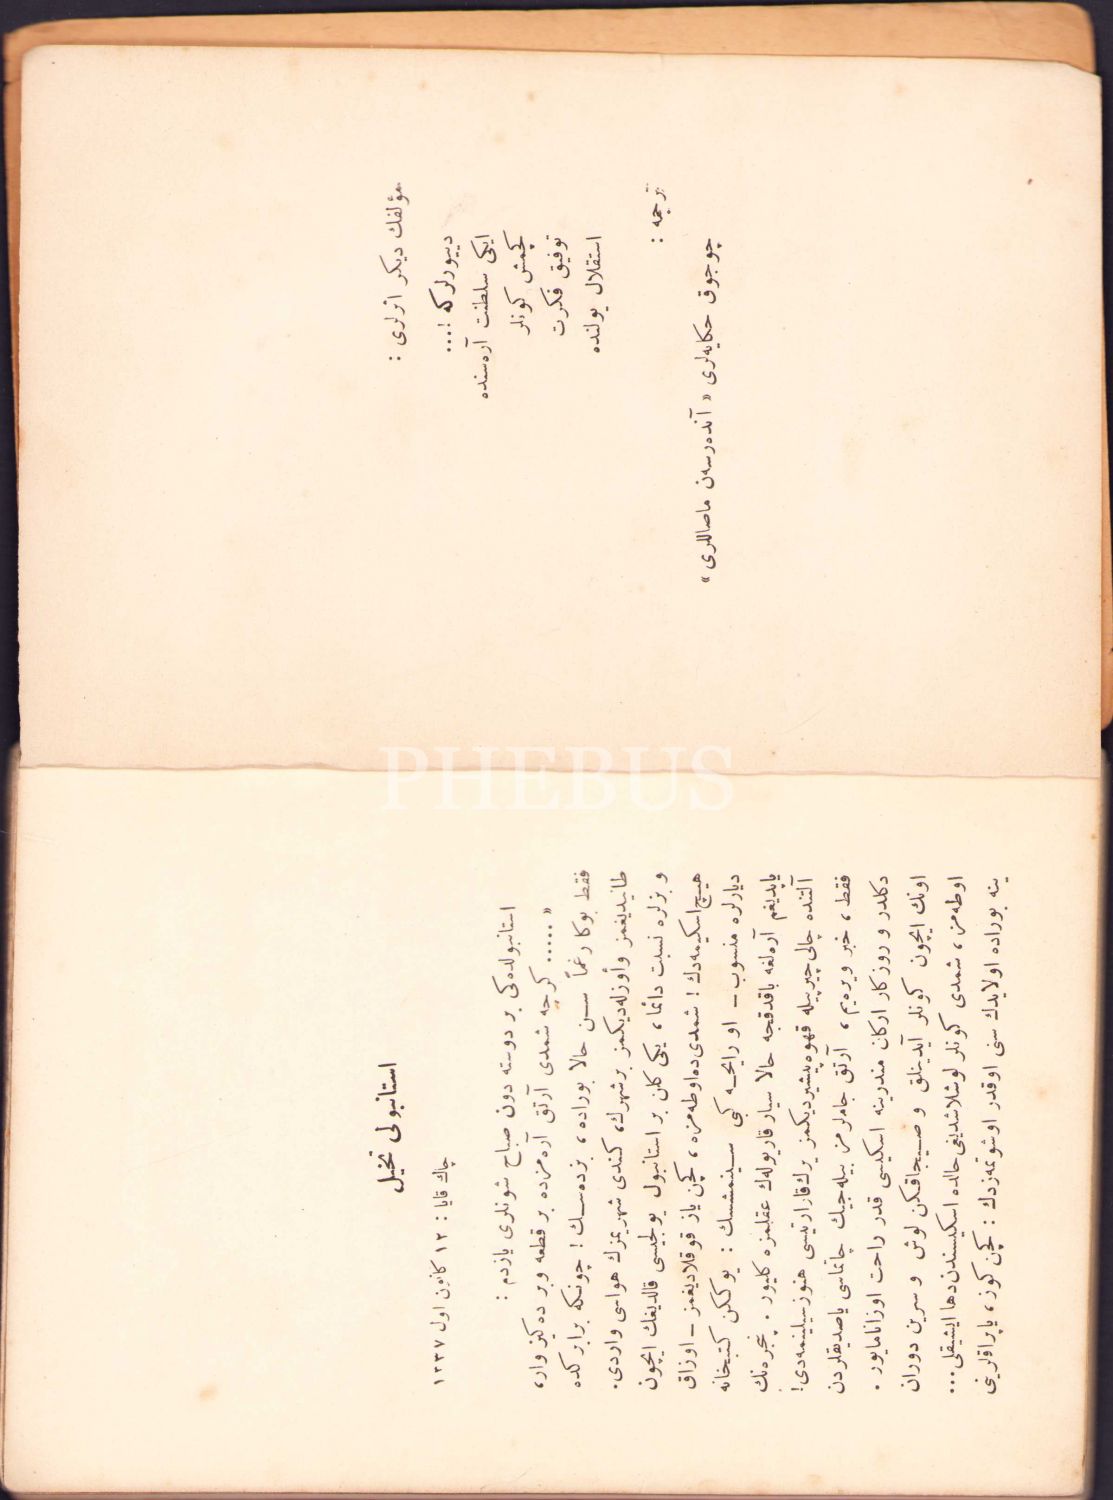 مؤلفك ديكر اثرلرى :
دييورلركه !...
ايكى سلطنت آره‌سنده
كچمش كونلر
توفيق فكرت
استقلال يولنده
ترجمه :
چوجوق حكايه‌لرى « آنده‌رسه‌ن ماصاللرى »
PHEBUS
استانبولى تخيل
چاك قايا : ١٢ كانون اول ١٣٣٧
استانبولده‌كى بر دوسته دون صباح شونلرى يازدم :
« ..... كرچه شمدى آرتق آره‌مزده بر قطعه وبر ده‌كيز وار،
فقط بوكا رغماً سن حالا بوراده ، بزده‌سك ! چونكه برابركده
طانيديغمز وأوزله‌ديكمز بر شهرك، كندى شهريمزك هواسى واردى.
و بزلره نسبت دائما، يكى كلن بر استانبول يولجيسى قالديغك ايچون
هيچ اسكيمه‌دك ! شمدى ده اوطه‌مزه، كچن ياز قوقلاديغمز ـ اوزاق
ديارلره منسوب ـ او رايحه كبى سينمشسك : يوككن كتبخانه
ياپديغم آره‌لغه باقدقجه حالا سيار قاريوله‌ك عقلمزه كليور . پنجره‌نك
آلتنده چالى چيرپيله قهوه پيشيرديكمز يرك قارارتيسى هنوز سيلينمه‌دى!
فقط ، خبر ويره‌يم ، آرتق جاملرمز بيله‌جيك چاتماسى ياصديقلردن
دكلدر و روزكار اركان مندرينه اسكيسى قدر راحت اوزانامايور .
اونك ايچون كونلر آيدينلق و صيجاقكن لوش و سرين دوران
اوطه‌مز ، شمدى كونلر لوشلاشديغى حالده اسكيسندن دها ايشيقلى...
ينه بوراده اولايدك سنى اوقدر اوشوتمه‌زدك : كچن كوز، ياپراقلرينى